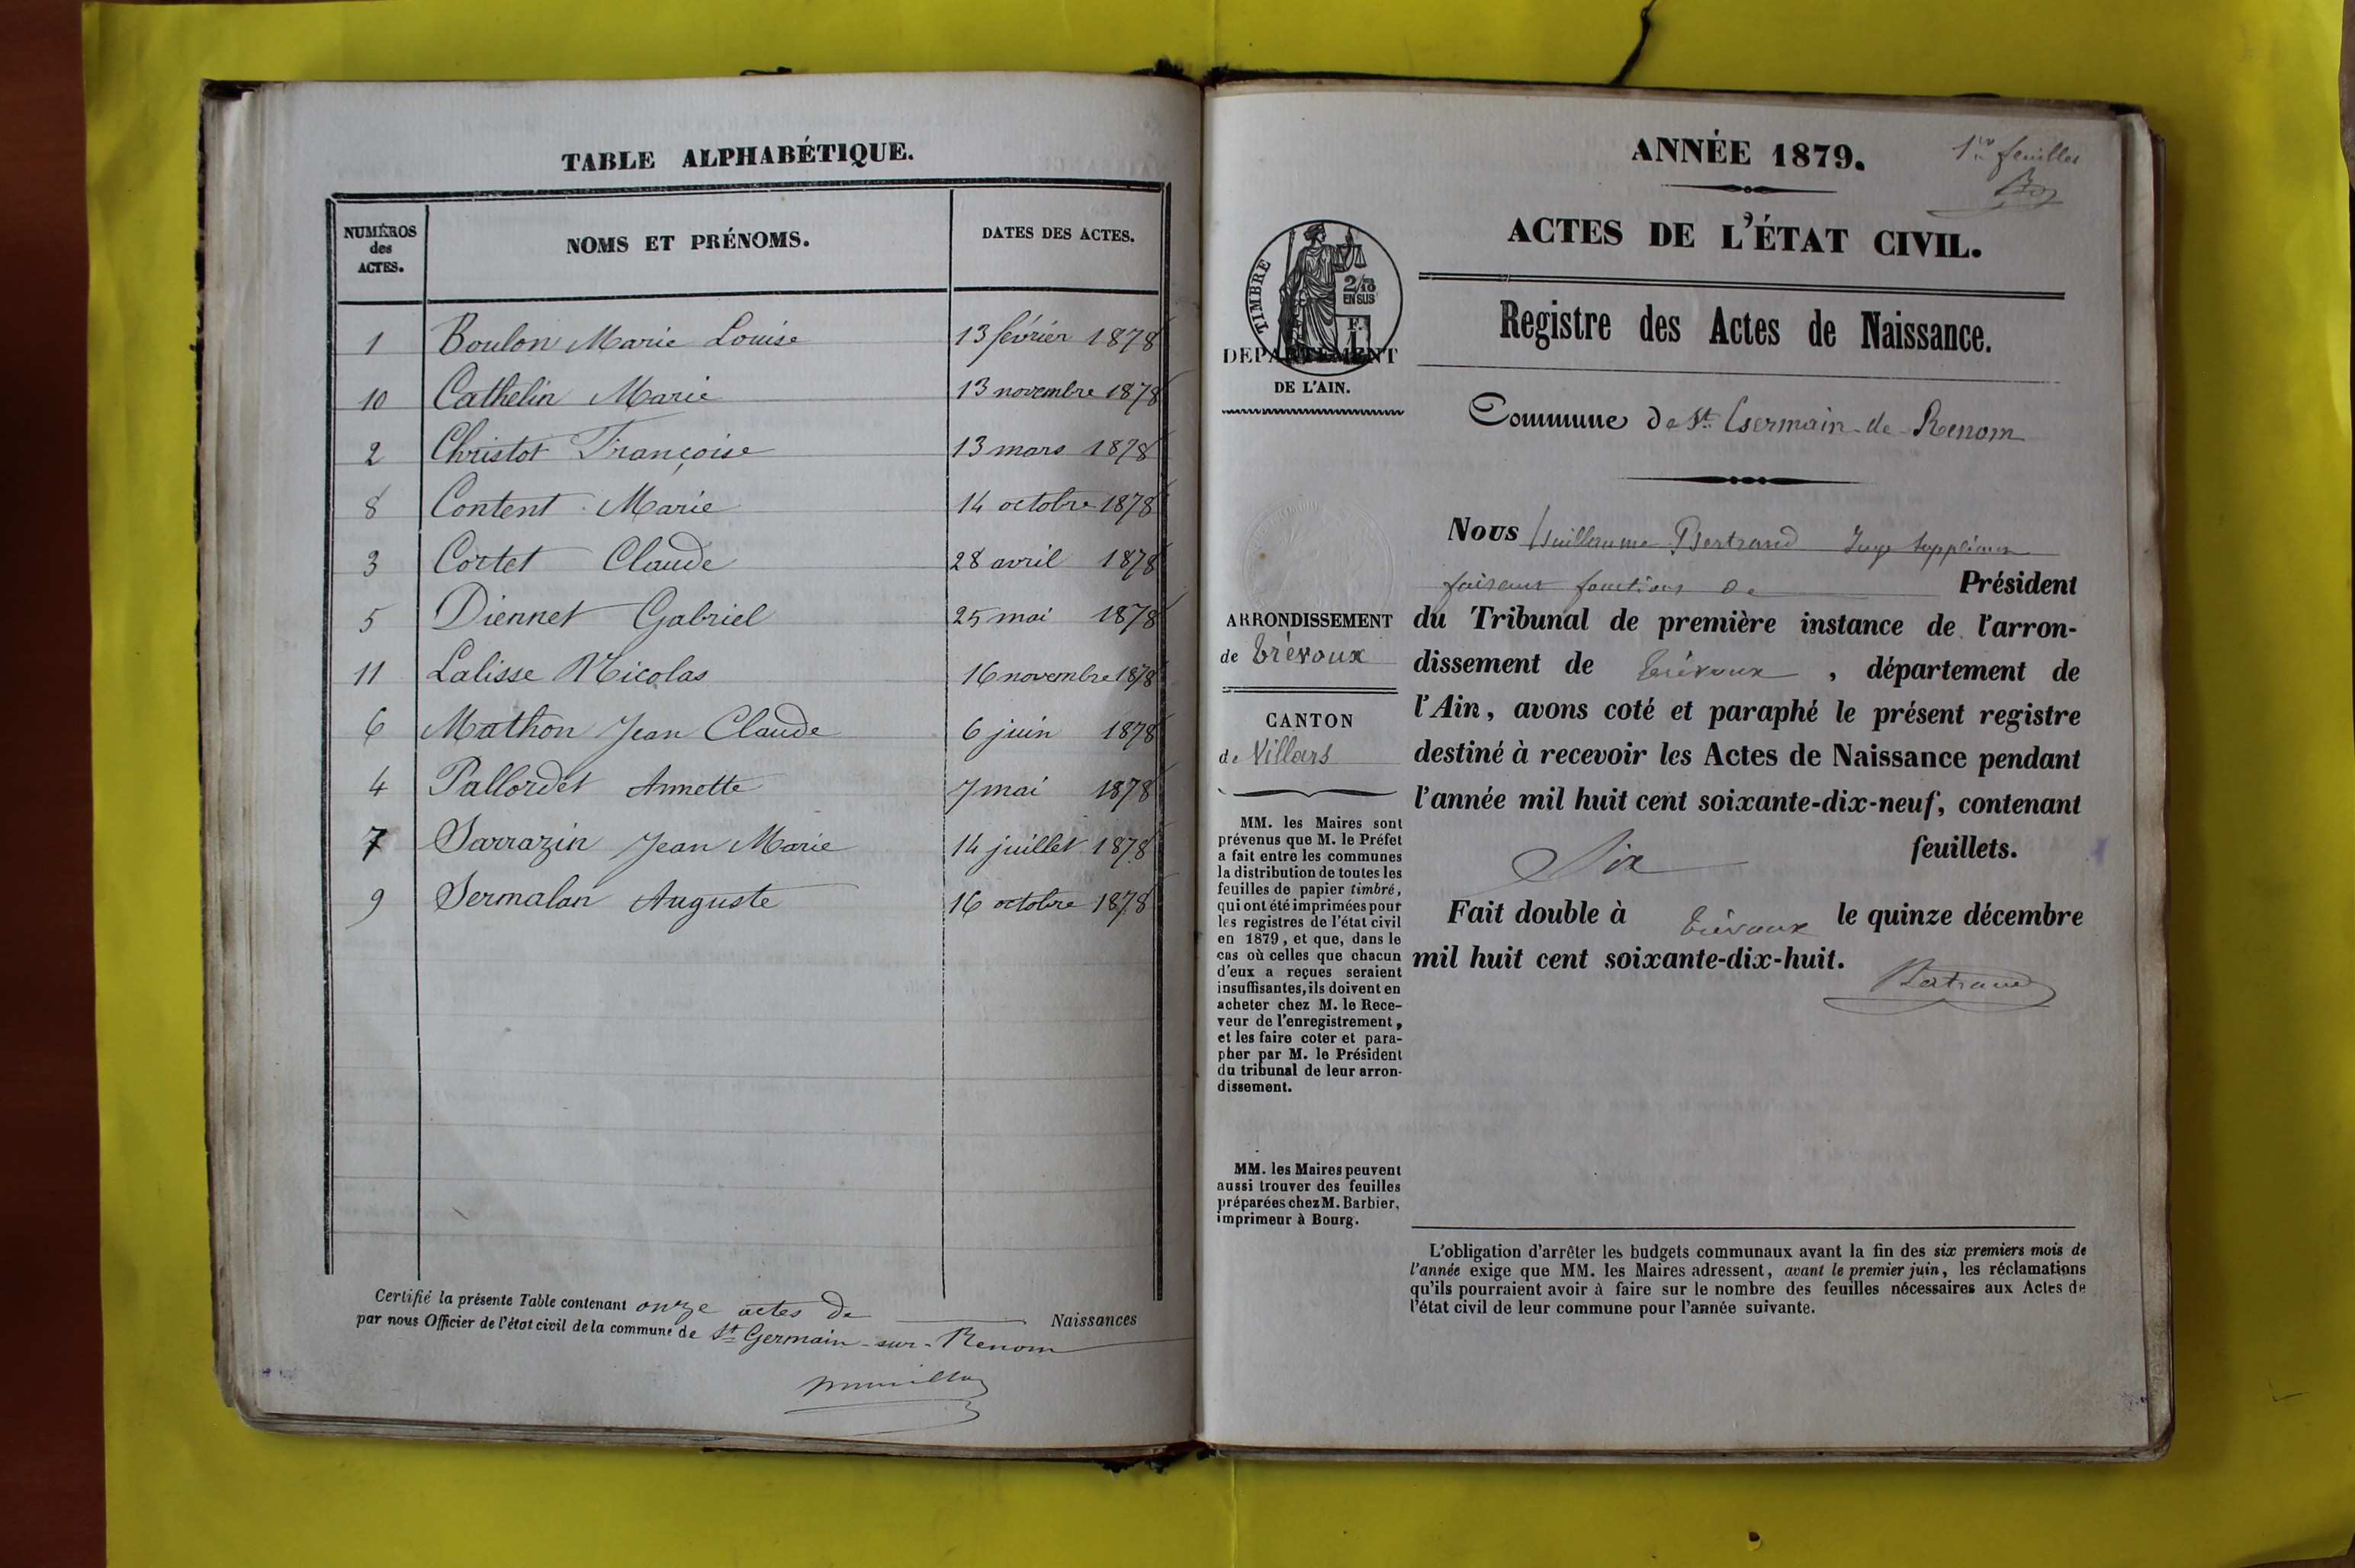 TABLE ALPHABÉTIQUE.
NUMÉROS
des
ACTES.
NOMS ET PRÉNOMS.
DATES DES ACTES.
1 Boulon Marie Louise 13 février 1878
10 Cathelin Marie 13 novembre 1878
2 Christot Françoise 13 mars 1878
8 Content Marie 14 octobre 1878
3 Cortet Claude 28 avril 1878
5 Diennet Gabriel 25 mai 1878
11 Lalisse Nicolas 16 novembre 1878
6 Mathon Jean Claude 6 juin 1878
4 Pallordet Annette 7 mai 1878
7 Sarrazin Jean Marie 14 juillet 1878
9 Sermalan Auguste 16 octobre 1878
Certifié la présente Table contenant onze actes de Naissances
par nous Officier de l'état civil de la commune de St Germain-sur-Renom
ANNÉE 1879.
ACTES DE L'ÉTAT CIVIL.
Registre des Actes de Naissance.
Commune de St Germain-de-Renom
TIMBRE
2/10
EN SUS
DEPARTEMENT
DE L'AIN.
ARRONDISSEMENT
de Trévoux
CANTON
de Villars
MM. les Maires sont
prévenus que M. le Préfet
a fait entre les communes
la distribution de toutes les
feuilles de papier timbré,
qui ont été imprimées pour
les registres de l'état civil
en 1879, et que, dans le
cas où celles que chacun
d'eux a reçues seraient
insuffisantes, ils doivent en
acheter chez M. le Rece-
veur de l'enregistrement,
et les faire coter et para-
pher par M. le Président
du tribunal de leur arron-
dissement.
MM. les Maires peuvent
aussi trouver des feuilles
préparées chez M. Barbier,
imprimeur à Bourg.
Nous Guillaume Bertrand Juge Suppléant
faisant fonctions de Président
du Tribunal de première instance de l'arron-
dissement de Trévoux, département de
l'Ain, avons coté et paraphé le présent registre
destiné à recevoir les Actes de Naissance pendant
l'année mil huit cent soixante-dix-neuf, contenant
Six feuillets.
Fait double à Trévoux le quinze décembre
mil huit cent soixante-dix-huit.
Bertrand
L'obligation d'arrêter les budgets communaux avant la fin des six premiers mois de
l'année exige que MM. les Maires adressent, avant le premier juin, les réclamations
qu'ils pourraient avoir à faire sur le nombre des feuilles nécessaires aux Actes de
l'état civil de leur commune pour l'année suivante.